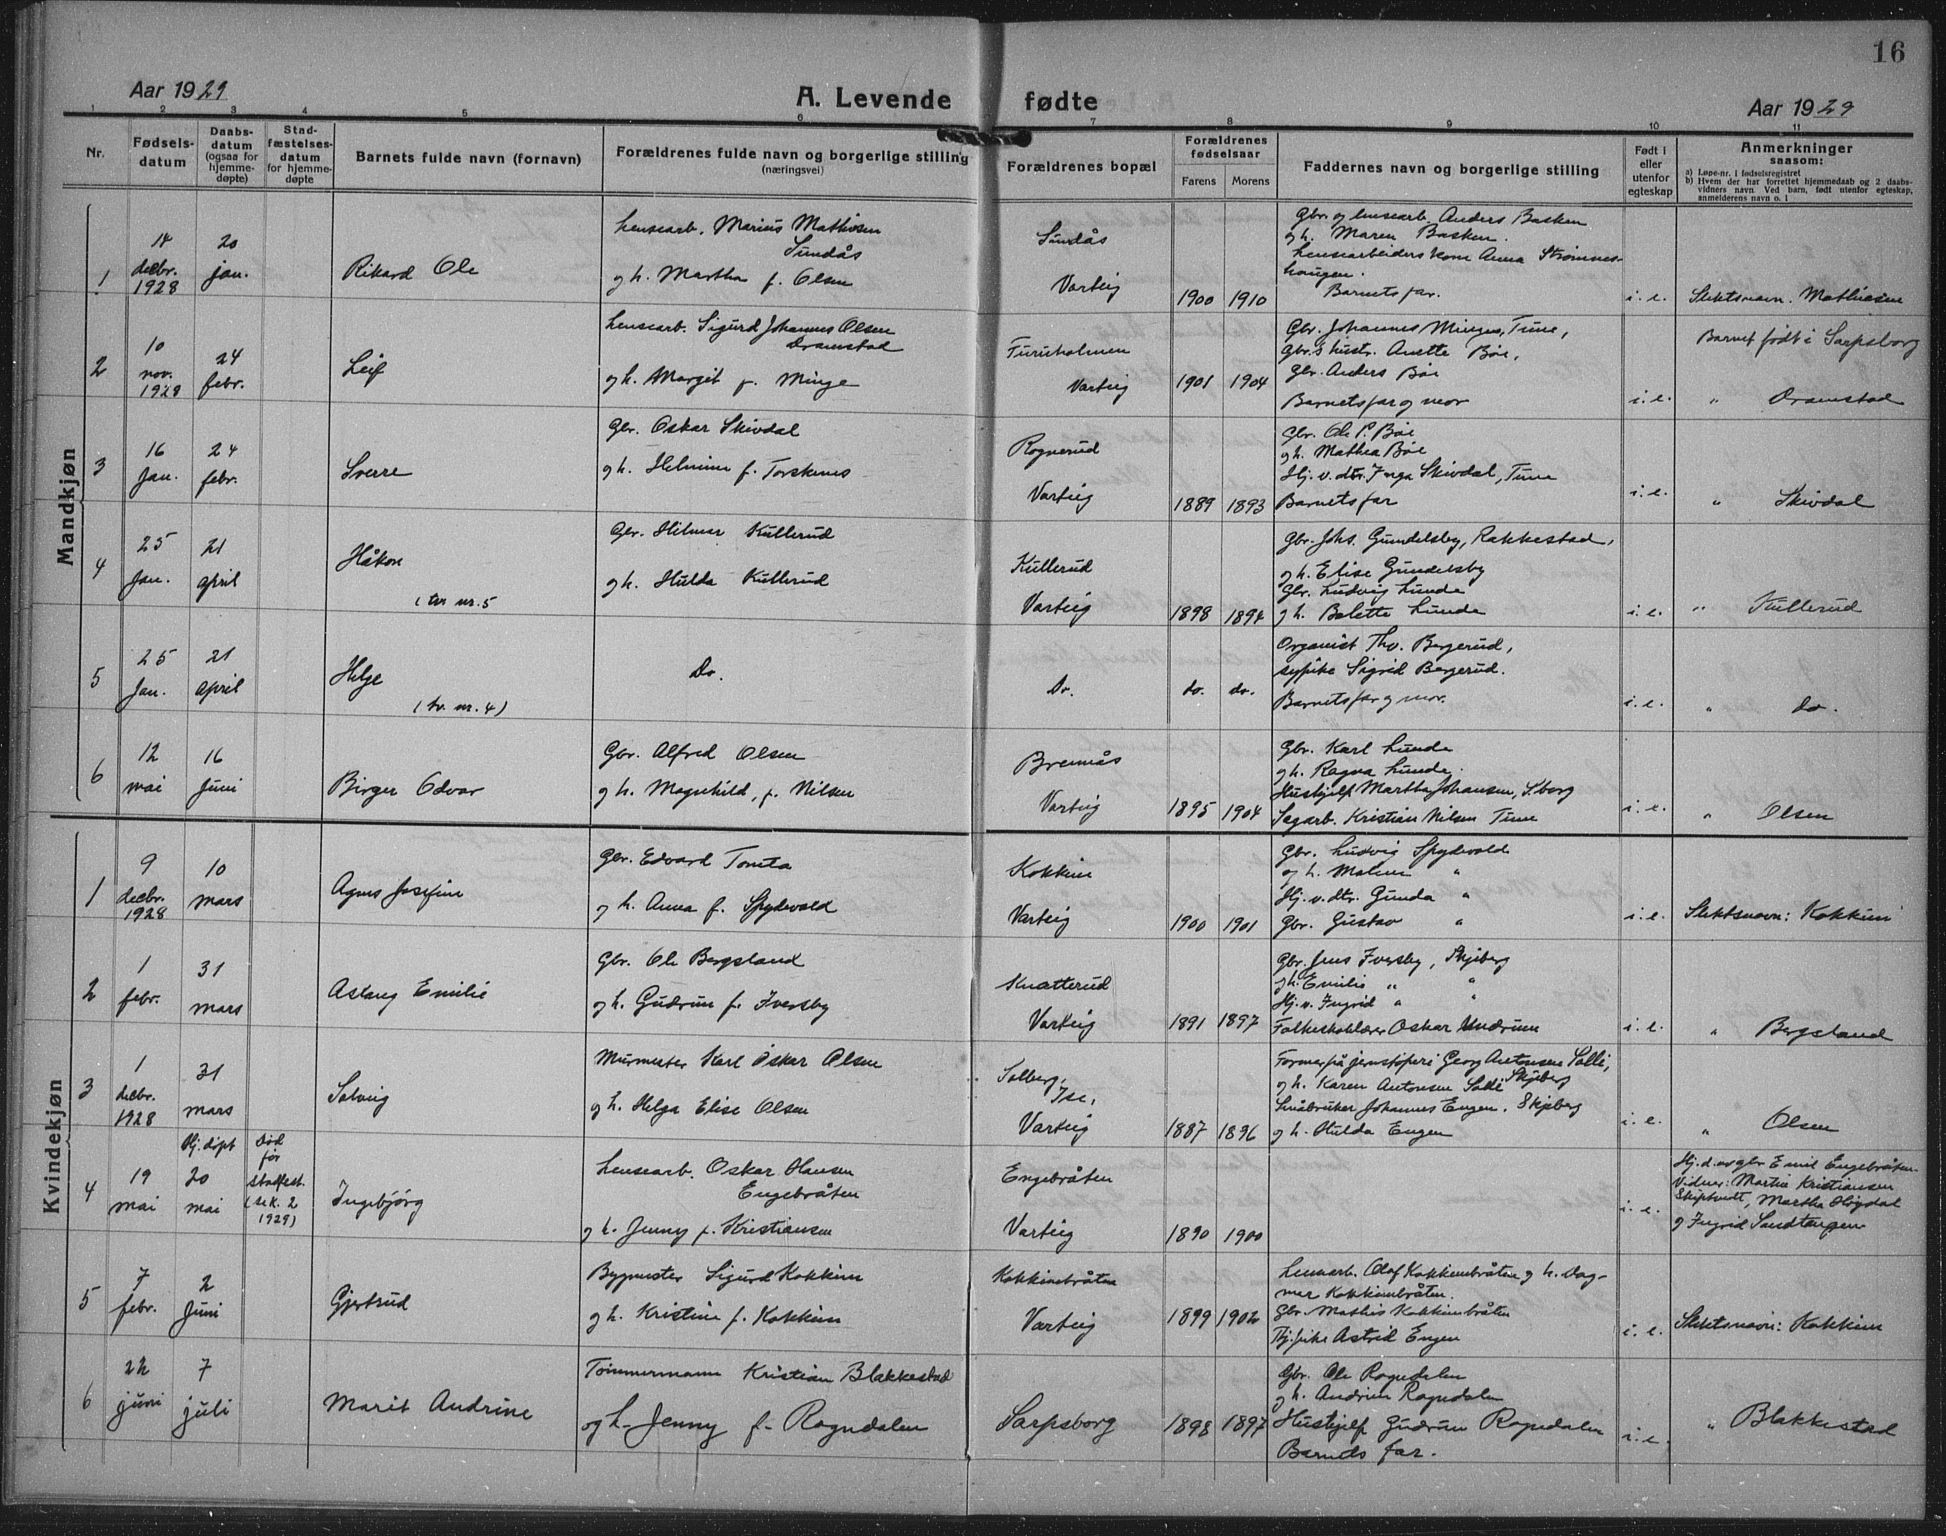 16
Aar 1929
A. Levende fødte
Aar 1929
1 2 3 4 5 6 7 8 9 10 11
Nr.
Fødsels-
datum
Daabs-
datum
(ogsaa for
hjemme-
døpte)
Stad-
fæstelses-
datum
for hjemme-
døpte
Barnets fulde navn (fornavn)
Forældrenes fulde navn og borgerlige stilling
(næringsvei)
Forældrenes bopæl
Forældrenes
fødselsaar
Farens Morens
Faddernes navn og borgerlige stilling
Født i
eller
utenfor
egteskap
Anmerkninger
saasom:
a) Løpe-nr. i fødselsregistret
b) Hvem der har forrettet hjemmedaab og 2 daabs-
vidners navn. Ved barn, født utenfor egteskap,
anmelderens navn o. l
Mandkjøn
1
14
decbr.
1928
20
jan.
Rikard Ole
Lensearb. Marius Mathisen
Sundås
og h. Martha f. Olsen
Sundås
Varteig
1900 1910
Gbr. og lensearb. Anders Basken
og h. Maren Basken.
Lensearbeiders kone Anna Strømnes-
haugen.
Barnets far.
i. e.
Slektsnavn. Mathisen
2
10
nov.
1928
24
febr.
Leif
Lensearb. Sigurd Johannes Olsen
Dramstad
og h. Margit f. Minge
Furuholmen
Varteig
1901 1904
Gbr. Johannes Minge, Tune,
Gbr.s hustr. Anette Bøe,
Gbr. Anders Bøe
Barnets far og mor
i. e.
Barnet født i Sarpsborg
" Dramstad
3
16
Jan.
24
febr.
Sverre
Gbr. Oskar Skivdal
og h. Helmine f. Torskenes
Rognerud
Varteig
1889 1893
Gbr. Ole P. Bøe
og h. Mathea Bøe
Hj. v. dtr. Inga Skivdal, Tune
Barnets far
i. e.
" Skivdal
4
25
Jan.
21
april
Håkon
(tv. nr. 5
Gbr. Hilmar Kullerud
og h. Hulda Kullerud
Kullerud
Varteig
1898 1894
Gbr. Johs. Gundelsby, Rakkestad,
og h. Elise Gundelsby
Gbr. Ludvig Lunde
og h. Belette Lunde
i. e.
" Kullerud
5
25
Jan.
21
april
Helge
(tv. nr. 4)
Do.
Do.
do. do.
Organist Thv. Bergerud,
sypike Sigrid Bergerud.
Barnets far og mor.
i. e.
" do.
6
12
mai
16
Juni
Birger Odvar
Gbr. Alfred Olsen
og h. Magnhild, f. Nilsen
Bremnås
Varteig
1895 1904
Gbr. Karl Lunde
og h. Ragna Lunde.
Hushjelp Martha Johansen, S.borg
Sagarb. Kristian Nilsen Tune
i. e.
" Olsen
Kvindekjøn
1
9
decbr.
1928
10
mars
Agnes Josefine
Gbr. Edvard Tomta
og h. Anna f. Spydevold
Kokkim
Varteig
1900 1901
Gbr. Ludvig Spydevold
og h. Malene "
Hj. v. dtr. Gunda "
Gbr. Gustav "
i. e.
Slektsnavn: Kokkim
2
1
febr.
31
mars
Aslaug Emilie
Gbr. Ole Bergsland
og h. Gudrun f. Iversby
Knatterud
Varteig
1891 1897
Gbr. Jens Iversby, Skjeberg
og h. Emilie " "
Hj. v. Ingrid " "
Folkeskolelærer Oskar Undrum
i. e.
" Bergsland
3
1
decbr.
1928
31
mars
Solveig
Murmester Karl Oskar Olsen
og h. Helga Elise Olsen
Solberg,
Ise,
Varteig
1887 1896
Former på jernstøperi Georg Antonsen Solli,
og h. Karen Antonsen Solli Skjeberg
Småbruker Johannes Engen. Skjeberg
og h. Hulda Engen
i. e.
" Olsen
4
19
mai
Hj. døpt
20
mai
Død
før
stadfest.
(se K. 2
1929)
Ingebjørg
Lensearb. Oskar Hansen
Engebråten
og h. Jenny f. Kristiansen
Engebråten
Varteig
1890 1900
i. e.
Hj. d. av gbr. Emil Engebråten.
Vidner: Martin Kristiansen
Martha Høgdal
og Ingrid Sandtangen
5
7
febr.
2
Juni
Gjertrud
Bygmester Sigurd Kokkim
og h. Kristine f. Kokkim
Kokkimbråten
Varteig
1899 1902
Lensearb. Olaf Kokkimbråten og h. Dag-
mar Kokkimbråten.
Gbr. Mathis Kokkimbråten
Tj. pike Astrid Engen
i. e.
Slektsnavn: Kokkim
6
22
juni
7
juli
Marit Andrine
Tømmermann Kristian Blakkestad
og h. Jenny f. Rogndalen
Sarpsborg
1898 1897
Gbr. Ole Rogndalen
og h. Andrine Rogndalen
Hushjelp Gudrun Rogndalen
Barnets far.
i. e.
" Blakkestad